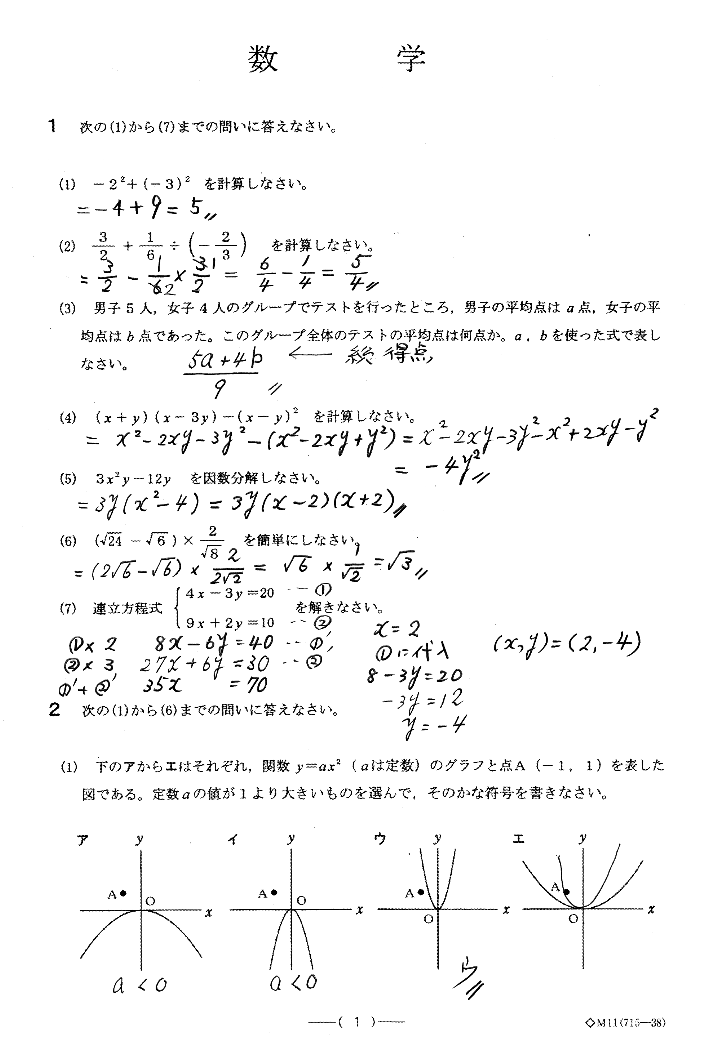 数 学
1 次の(1)から(7)までの問いに答えなさい。
(1) －2²＋(－3)² を計算しなさい。
=-4+9=5〃
(2) 3/2 + 1/6 ÷ (－2/3) を計算しなさい。
= 3/2 - 1/6 × 3/2 = 6/4 - 1/4 = 5/4〃
(3) 男子5人，女子4人のグループでテストを行ったところ，男子の平均点はa点，女子の平
均点はb点であった。このグループ全体のテストの平均点は何点か。a，bを使った式で表し
なさい。 (5a+4b)/9〃 ← 総得点
(4) (x＋y)(x－3y)－(x－y)² を計算しなさい。
= x²-2xy-3y²-(x²-2xy+y²)=x²-2xy-3y²-x²+2xy-y²
= -4y²〃
(5) 3x²y－12y を因数分解しなさい。
=3y(x²-4)=3y(x-2)(x+2)〃
(6) (√24 －√6)× 2/√8 を簡単にしなさい。
=(2√6-√6)× 2/2√2 = √6 × 1/√2 =√3〃
(7) 連立方程式 { 4x－3y=20 --① を解きなさい。
9x＋2y=10 --②
①×2 8x-6y=40 --①'
②×3 27x+6y=30 --②
①'+②' 35x =70
x=2
①に代入
8-3y=20
-3y=12
y=-4
(x,y)=(2,-4)
2 次の(1)から(6)までの問いに答えなさい。
(1) 下のアからエはそれぞれ，関数 y=ax²（aは定数）のグラフと点A（－1，1）を表した
図である。定数aの値が1より大きいものを選んで，そのかな符号を書きなさい。
ア y イ y ウ y エ y
A O x A O x A O x A O x
a<0 a<0 ウ〃
―( 1 )―
◇M11(715―38)